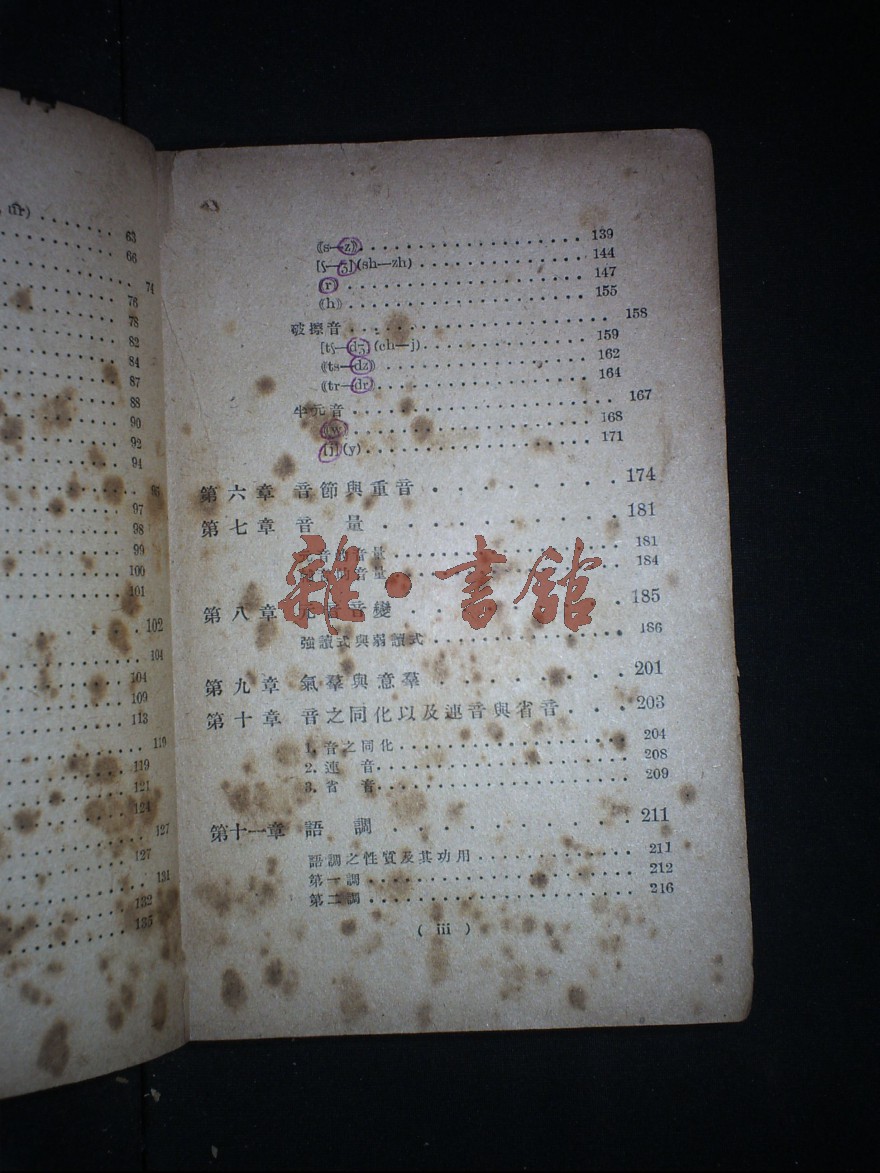 63
66
74
76
78
82
84
87
88
90
92
94
96
97
98
99
100
101
102
104
104
109
113
119
119
121
124
127
127
131
132
135
⟪s—z⟫ 139
[ʃ—ʒ](sh—zh) 144
⟪r⟫ 147
⟪h⟫ 155
破擦音 158
[tʃ—dʒ](ch—j) 159
⟪ts—dz⟫ 162
⟪tr—dr⟫ 164
半元音 167
⟪w⟫ 168
[j](y) 171
第六章 音節與重音 174
第七章 音量 181
音量 181
音量 184
第八章 元音音變 185
強讀式與弱讀式 186
第九章 氣羣與意羣 201
第十章 音之同化以及連音與省音 203
1. 音之同化 204
2. 連音 208
3. 省音 209
第十一章 語調 211
語調之性質及其功用 211
第一調 212
第二調 216
( iii )
雜·書館